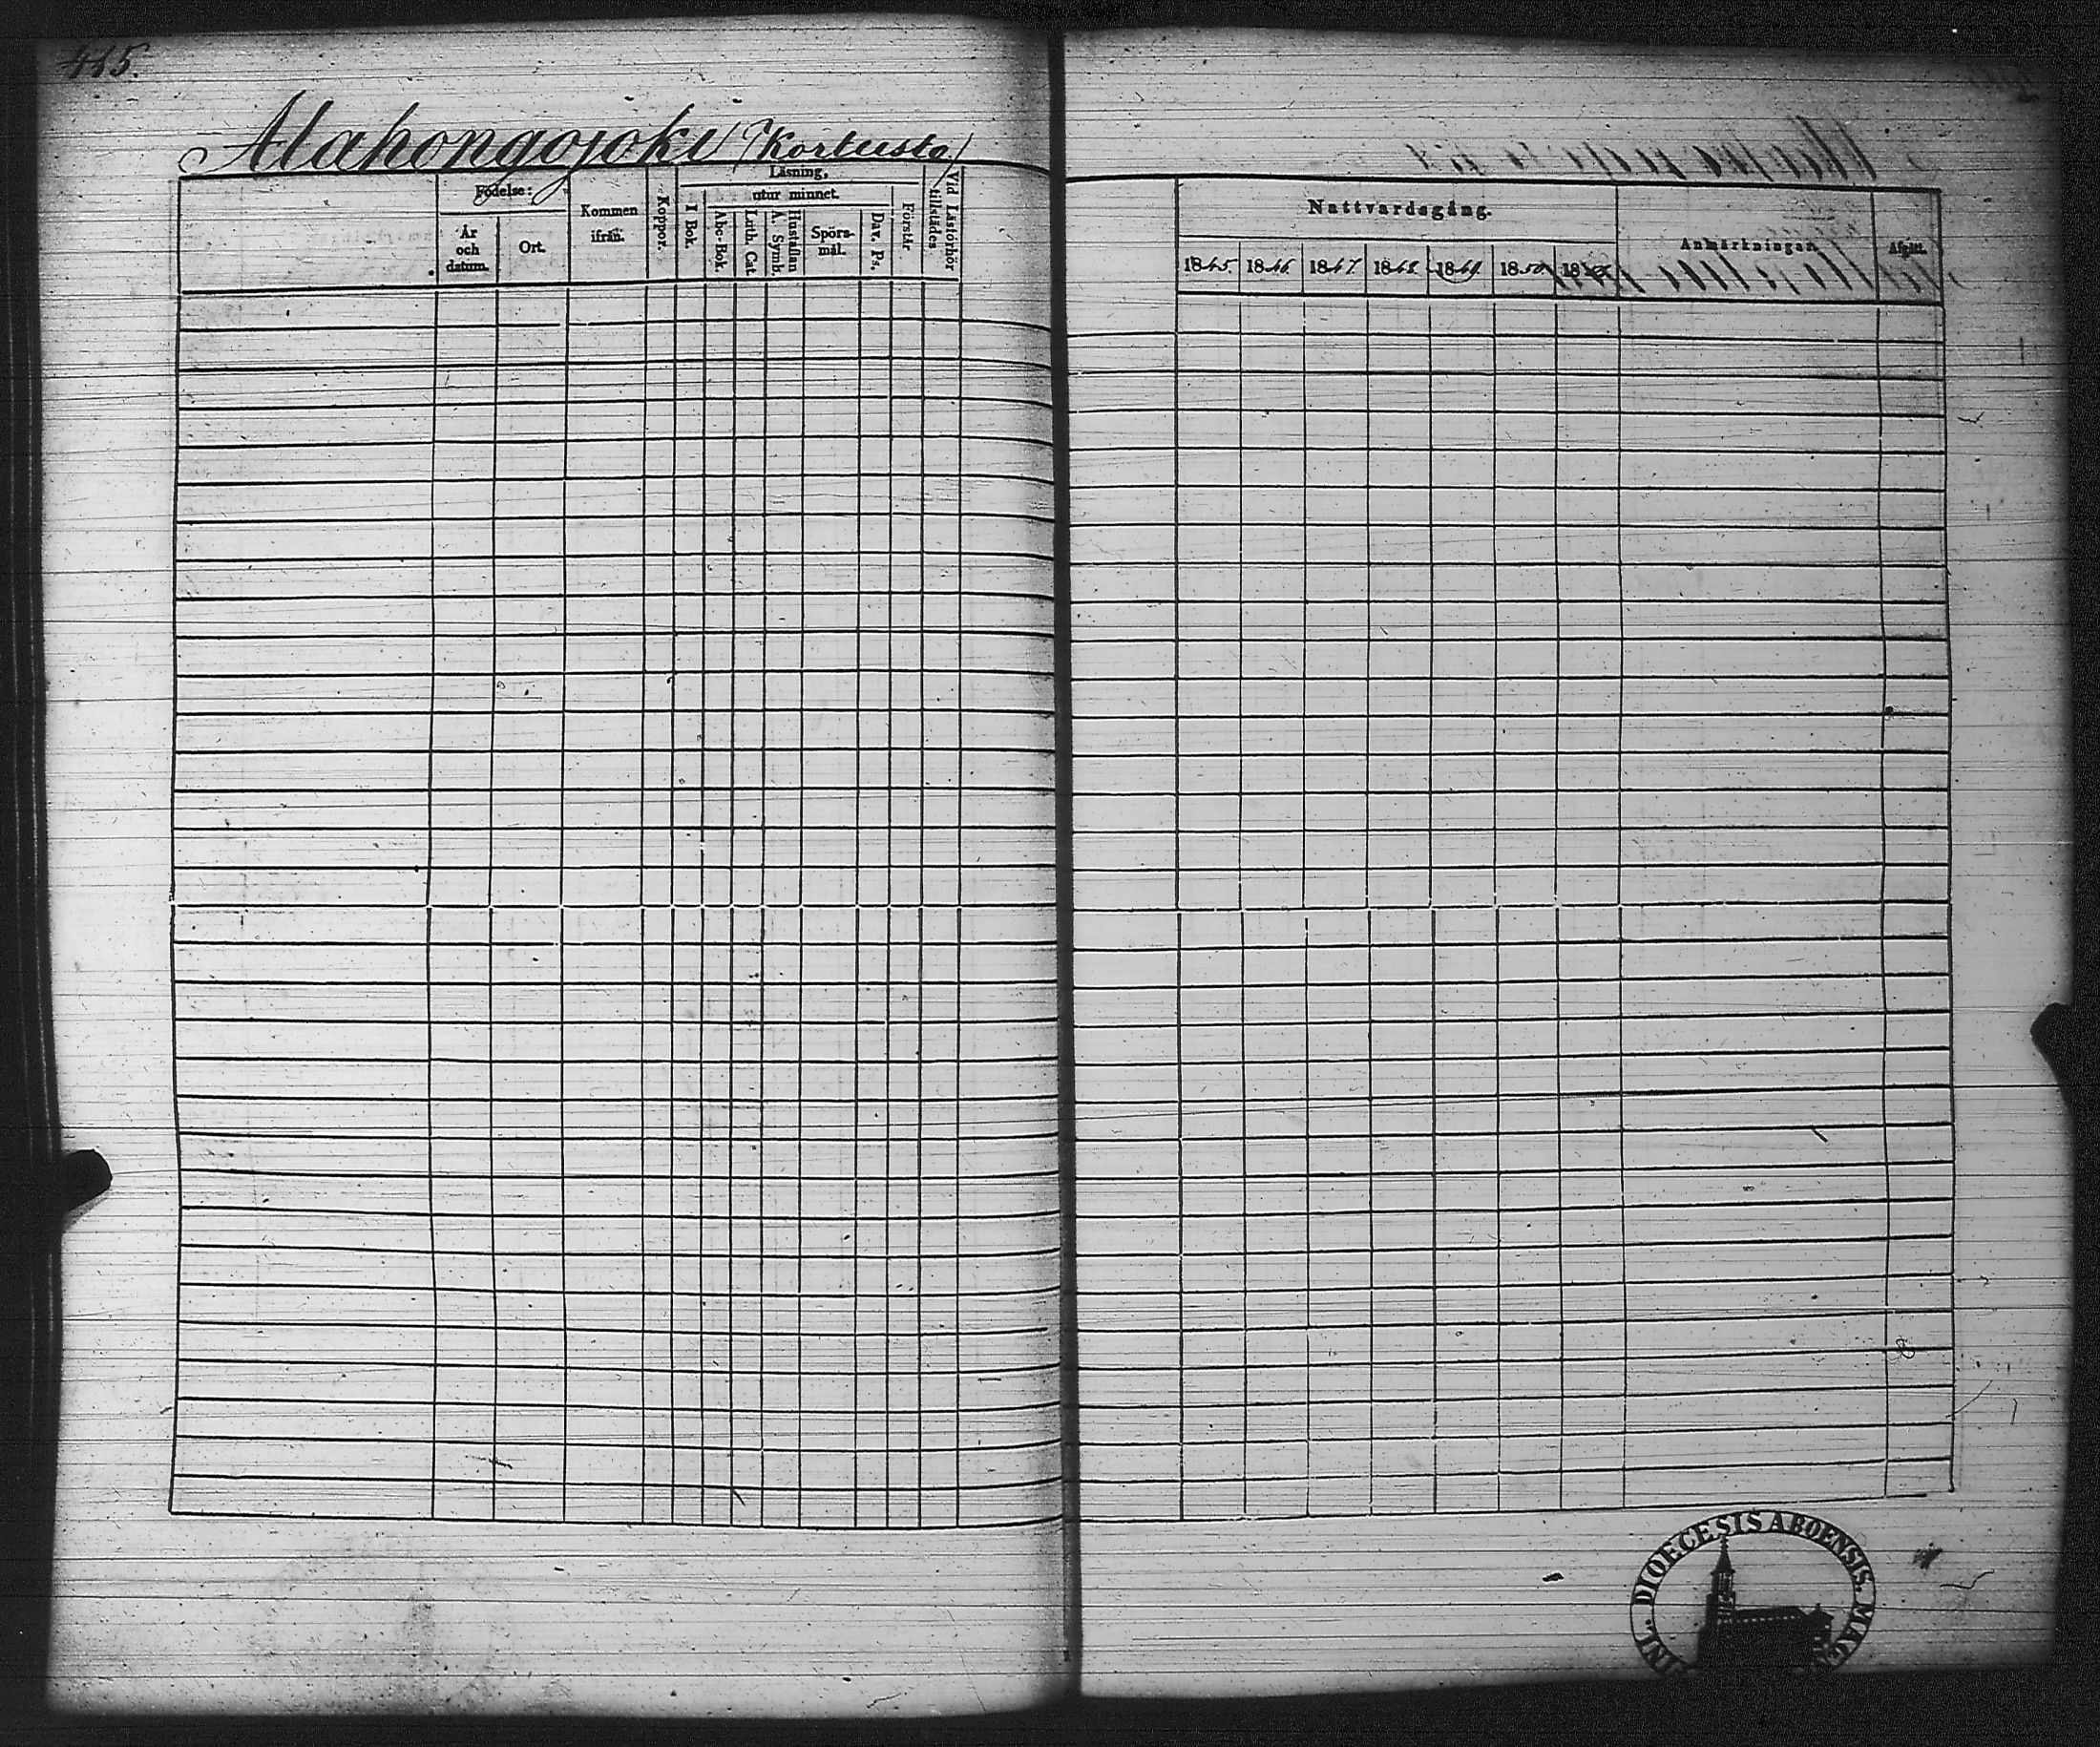 415.
Alahongojoki (Kortusta)
Födelse:
År och datum.
Ort.
Kommen ifrån.
Koppor.
Läsning,
utur minnet.
I Bok.
Abc-Bok.
Luth. Cat.
Hustaflan A. Symb.
Spörs-mål.
Dav. Ps.
Förstår
Vid Läsförhör tillstädes
Nattvardsgång.
1845. 1846. 1847. 1848. 1849. 1850. 18
Anmärkningar.
Afgått.
DIOECESIS ABOENSIS. MAGN